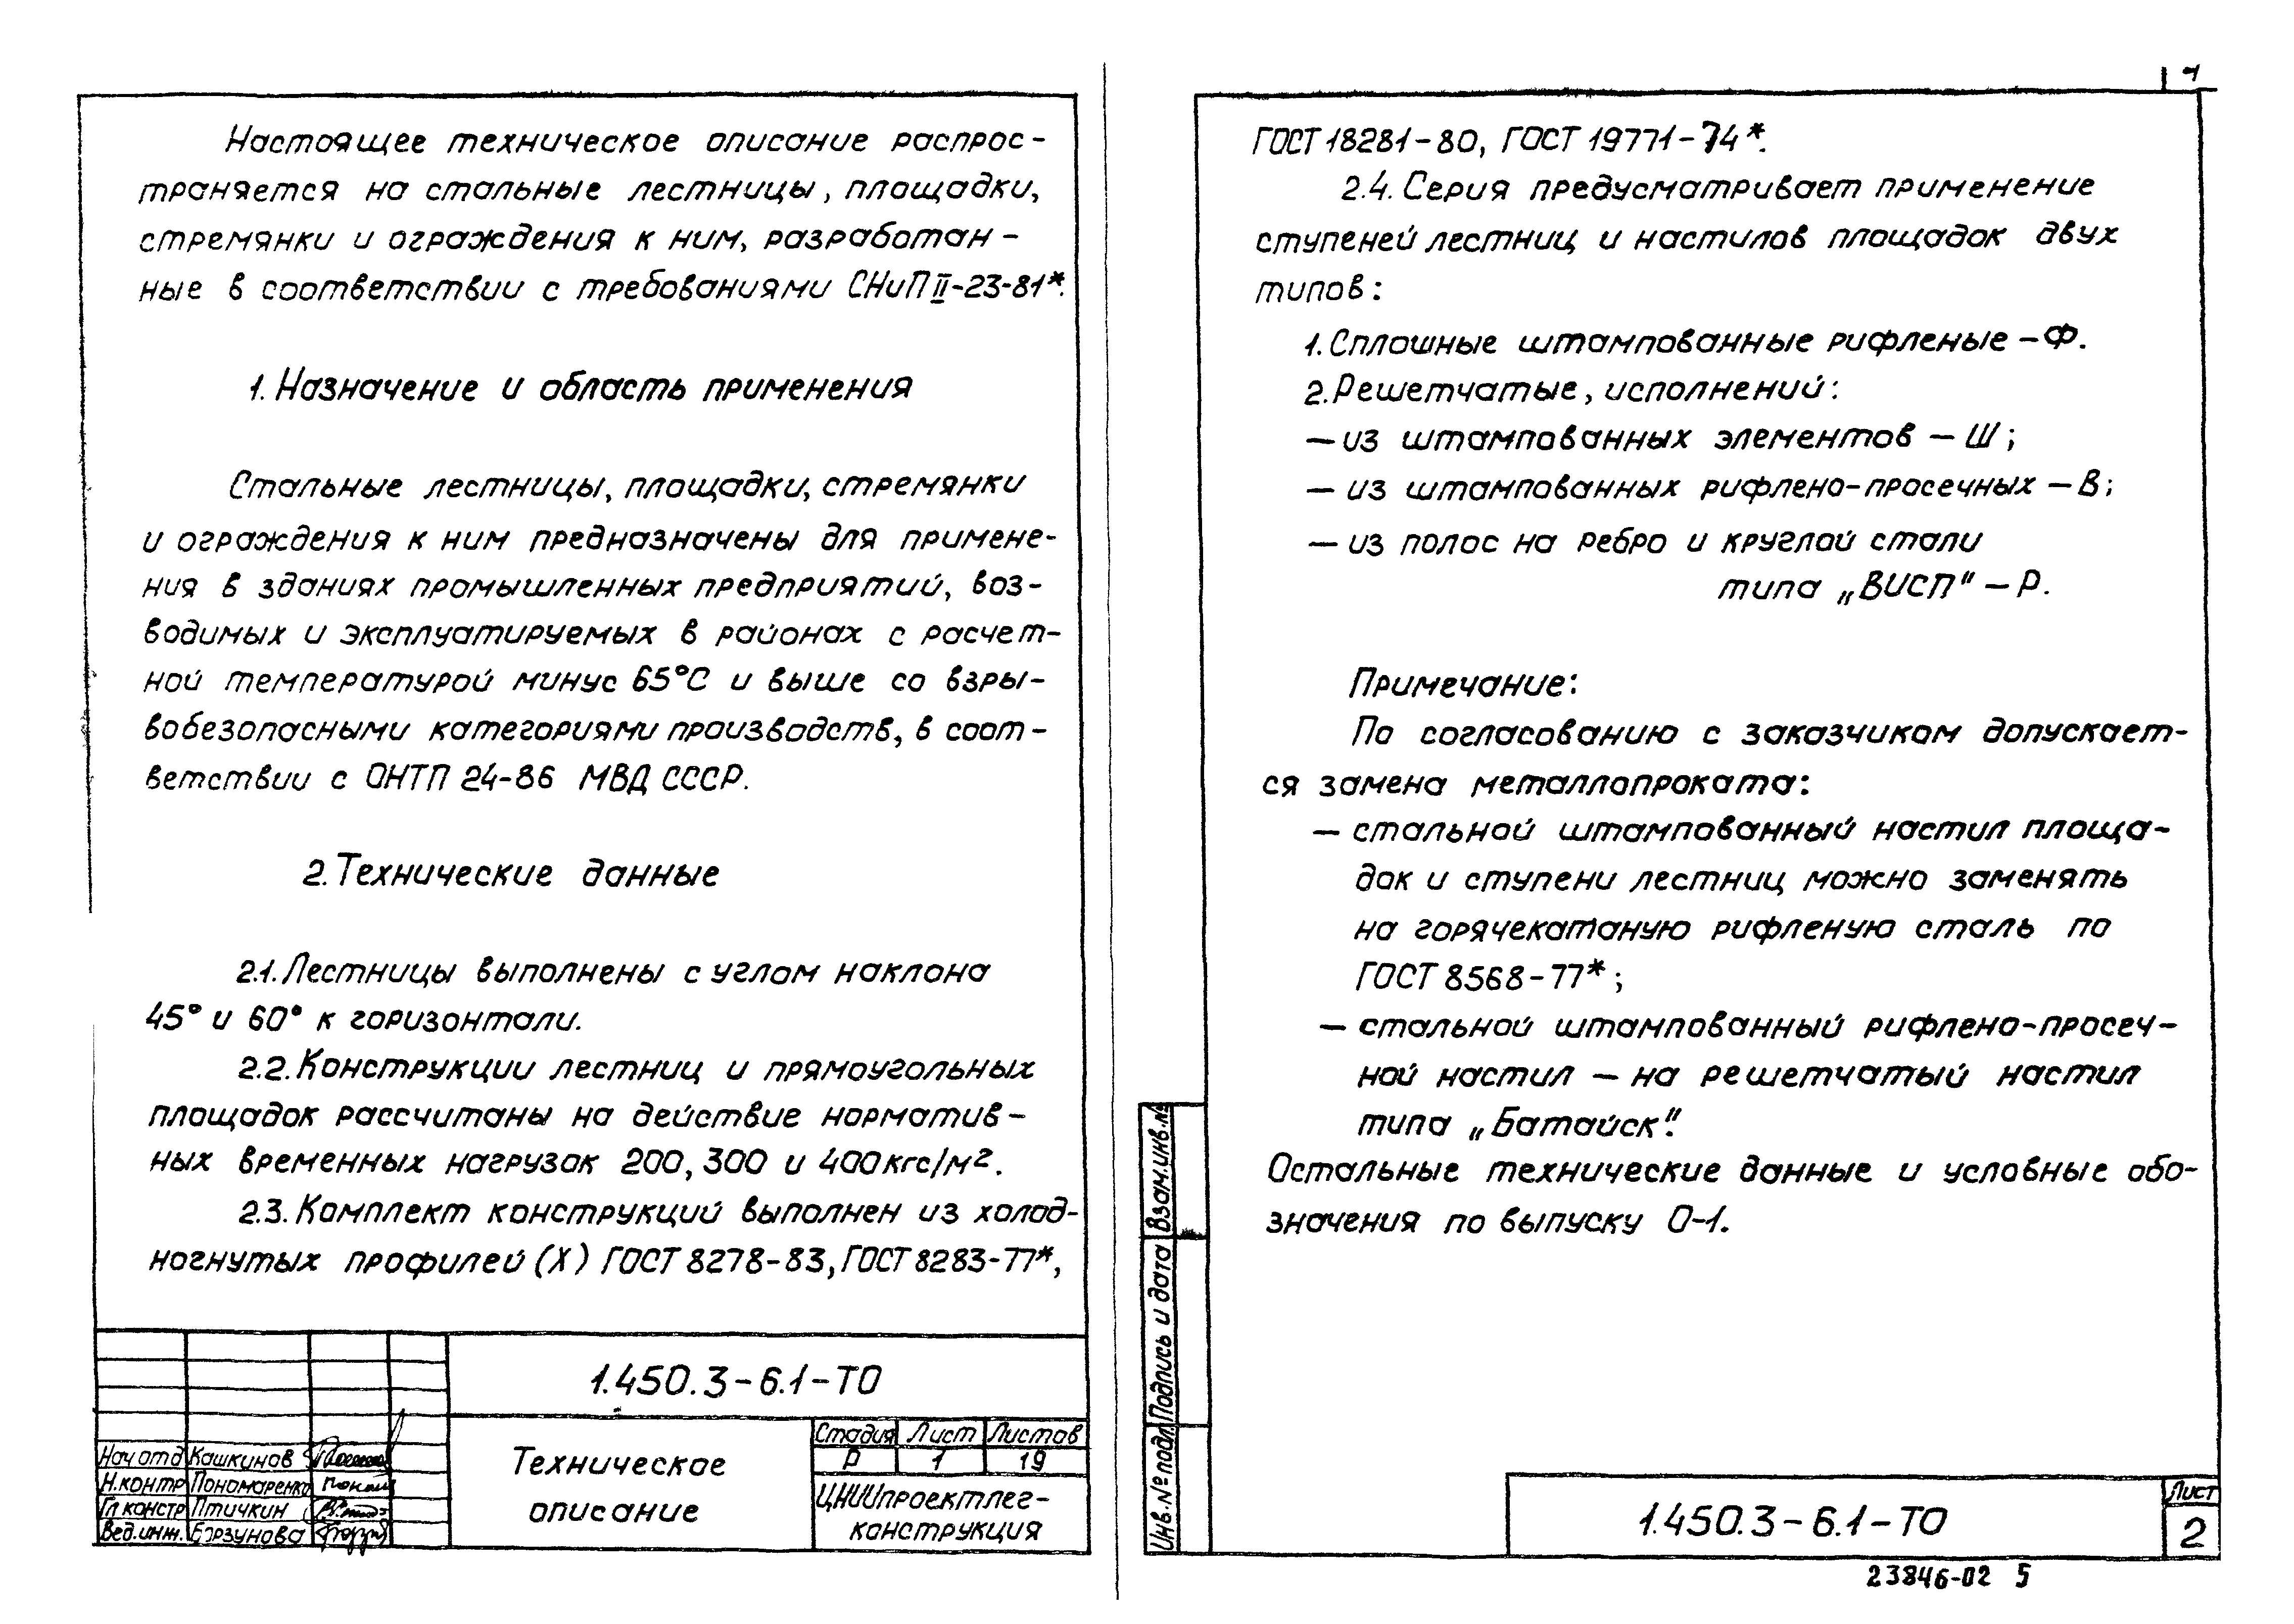 Настоящее техническое описание распрос-
траняется на стальные лестницы, площадки,
стремянки и ограждения к ним, разработан-
ные в соответствии с требованиями СНиП II-23-81*.
1. Назначение и область применения
Стальные лестницы, площадки, стремянки
и ограждения к ним предназначены для примене-
ния в зданиях промышленных предприятий, воз-
водимых и эксплуатируемых в районах с расчет-
ной температурой минус 65°С и выше со взры-
вобезопасными категориями производств, в соот-
ветствии с ОНТП 24-86 МВД СССР.
2. Технические данные
2.1. Лестницы выполнены с углом наклона
45° и 60° к горизонтали.
2.2. Конструкции лестниц и прямоугольных
площадок рассчитаны на действие норматив-
ных временных нагрузок 200, 300 и 400 кгс/м².
2.3. Комплект конструкций выполнен из холод-
ногнутых профилей (Х) ГОСТ 8278-83, ГОСТ 8283-77*,
1.450.3-6.1-ТО
Нач отд Кашкинов
Н.контр Пономаренко
Гл констр Птичкин
Вед.инж. Борзунова
Техническое
описание
Стадия Лист Листов
Р 1 19
ЦНИИпроектлег-
конструкция
ГОСТ 18281-80, ГОСТ 19771-74*.
2.4. Серия предусматривает применение
ступеней лестниц и настилов площадок двух
типов:
1. Сплошные штампованные рифленые - Ф.
2. Решетчатые, исполнений:
- из штампованных элементов - Ш;
- из штампованных рифлено-просечных - В;
- из полос на ребро и круглой стали
типа „ВИСП" - Р.
Примечание:
По согласованию с заказчиком допускает-
ся замена металлопроката:
- стальной штампованный настил площа-
док и ступени лестниц можно заменять
на горячекатаную рифленую сталь по
ГОСТ 8568-77*;
- стальной штампованный рифлено-просеч-
ной настил - на решетчатый настил
типа „Батайск".
Остальные технические данные и условные обо-
значения по выпуску 0-1.
Взам.инв.№
Подпись и дата
Инв.№ подл.
1.450.3-6.1-ТО
Лист
2
23846-02 5